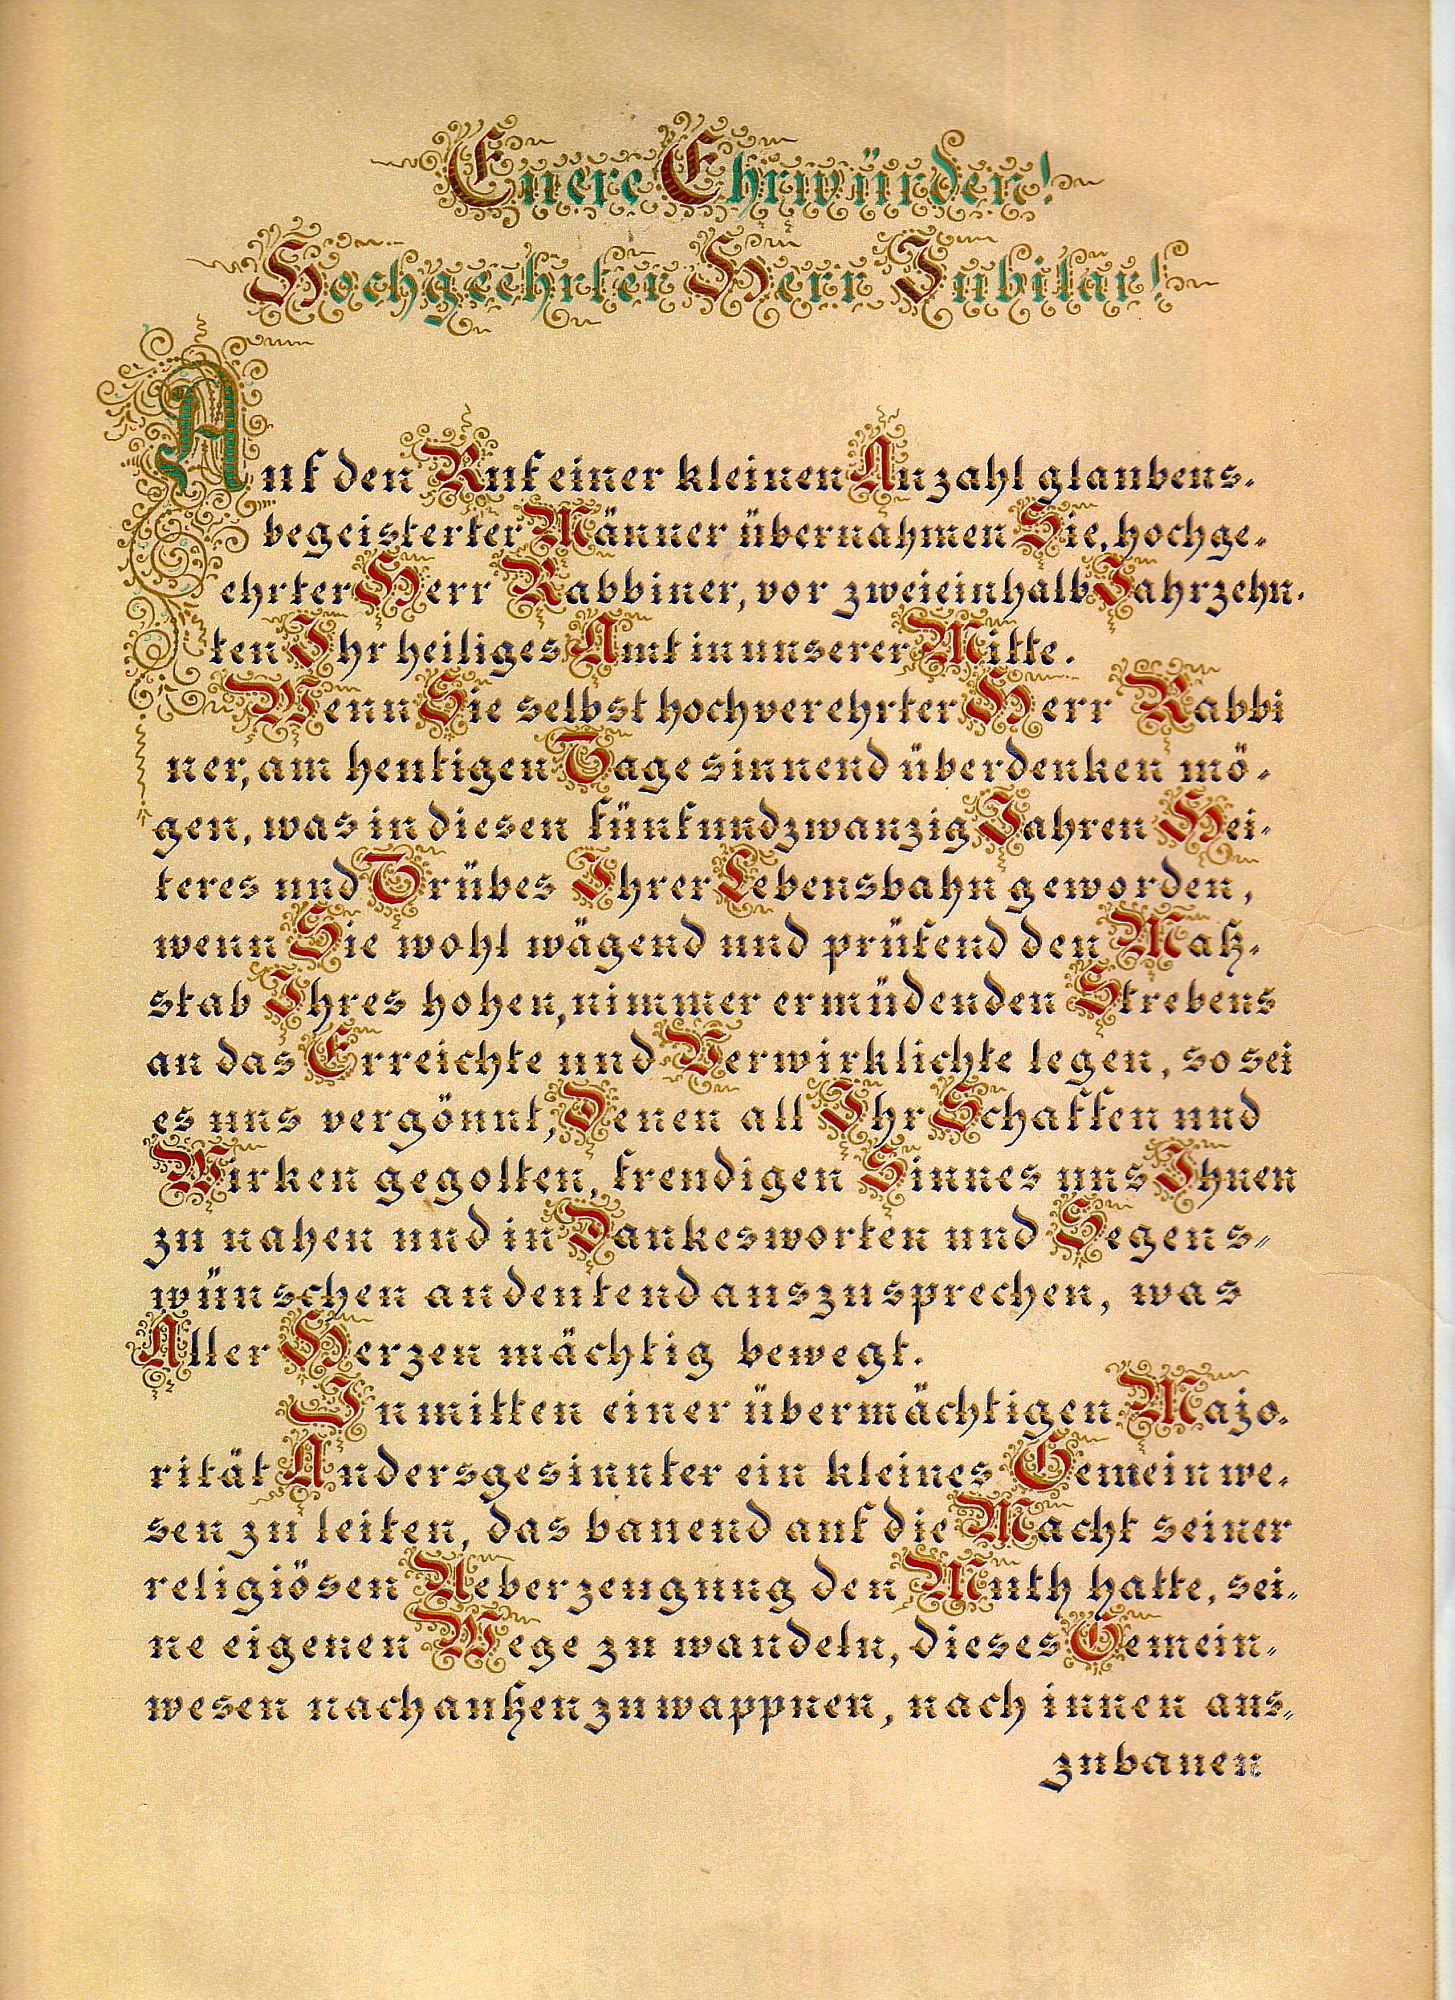 Euere Ehrwürden!
Hochgeehrter Herr Jubilar!
Auf den Ruf einer kleinen Anzahl glaubens-
begeisterter Männer übernahmen Sie, hochge-
ehrter Herr Rabbiner, vor zweieinhalb Jahrzehn-
ten Ihr heiliges Amt in unserer Mitte.
Wenn Sie selbst hochverehrter Herr Rabbi
ner, am heutigen Tage sinnend überdenken mö-
gen, was in diesen fünfundzwanzig Jahren Hei-
teres und Trübes Ihrer Lebensbahn geworden,
wenn Sie wohl wägend und prüfend den Maß-
stab Ihres hohen, nimmer ermüdenden Strebens
an das Erreichte und Verwirklichte legen, so sei
es uns vergönnt, Denen all Ihr Schaffen und
Wirken gegolten, freudigen Sinnes uns Ihnen
zu nahen und in Dankesworten und Segens-
wünschen andeutend auszusprechen, was
Aller Herzen mächtig bewegt.
Inmitten einer übermächtigen Majo-
rität Andersgesinnter ein kleines Gemeinwe-
sen zu leiten, das bauend auf die Macht seiner
religiösen Ueberzeugung den Muth hatte, sei-
ne eigenen Wege zu wandeln, dieses Gemein-
wesen nach außen zu wappnen, nach innen aus-
zubauen